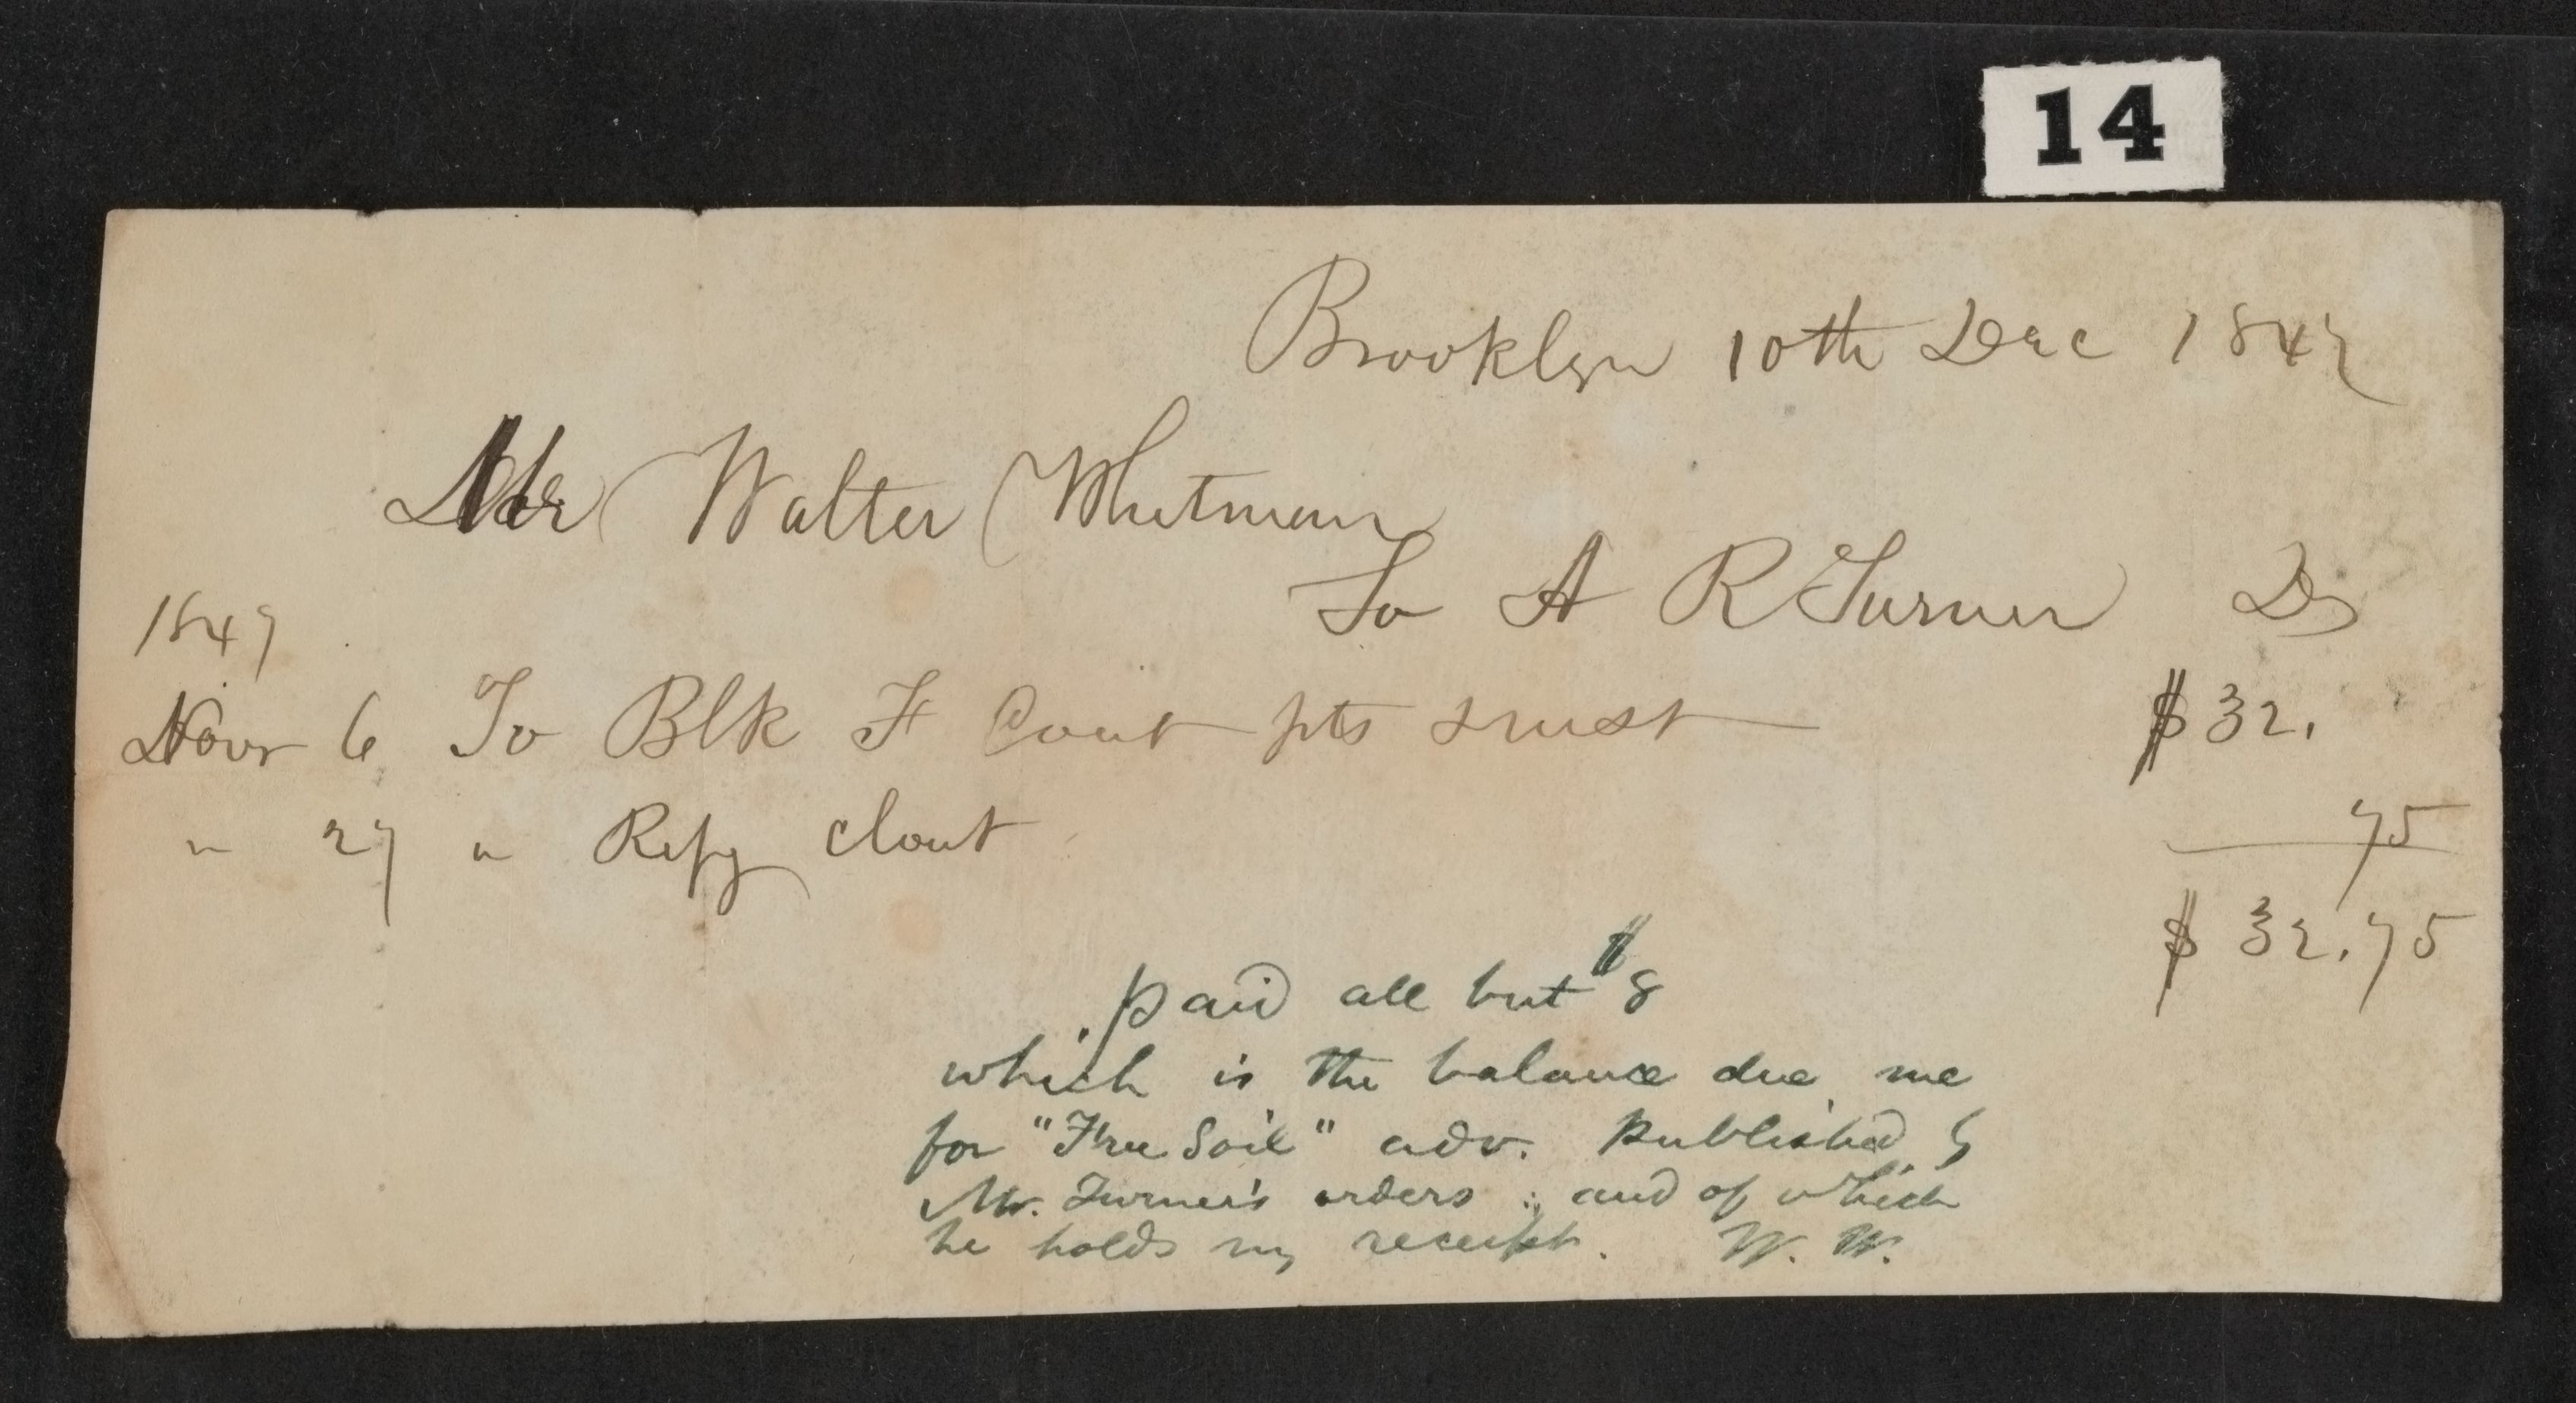 14
Brooklyn 10th Dec 1849
Mr Walter Whitman
To A R Turner Dr
1849
Novr 6 To Blk F Coat pts $32.
" 27 " Repg 75
$ 32.75
Paid all but $8
which is the balance due me
for "Free Soil" adv. published by
Mr. Turner's orders; and of which
he holds my receipt. W. W.